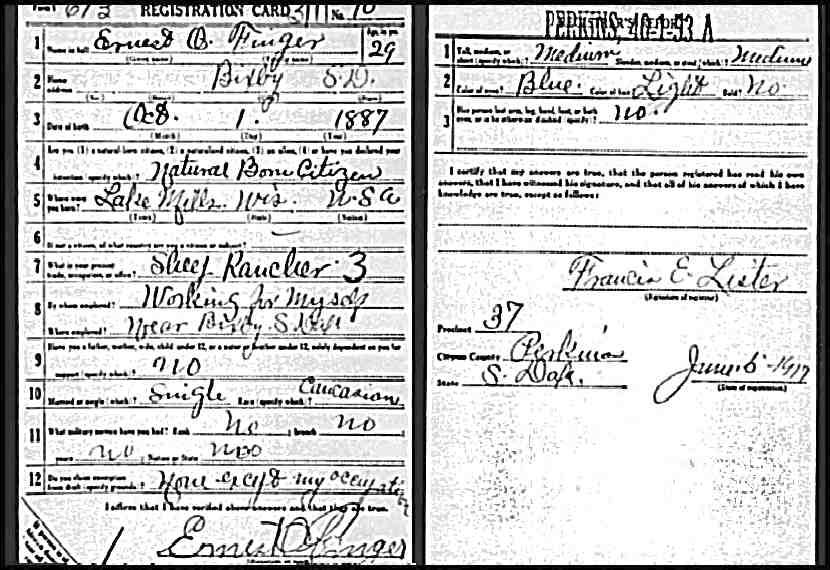 Form 1 613 REGISTRATION CARD 311 No. 70
1 Name in full Ernest O. Finger Age, in yrs. 29
(Given name) (Family name)
2 Home address Bixby S.D.
(No.) (Street) (State)
3 Date of birth Oct. 1 1887
(Month) (Day) (Year)
Are you (1) a natural-born citizen, (2) a naturalized citizen, (3) an alien, (4) or have you declared your
4 intention (specify which)? Natural Born Citizen
5 Where were you born? Lake Mills Wis. U S A
(Town) (State) (Nation)
6 If not a citizen, of what country are you a citizen or subject? —
7 What is your present trade, occupation, or office? Sheep Rancher 3
8 By whom employed? Working for Myself
Where employed? Near Bixby S. Dak
9 Have you a father, mother, wife, child under 12, or a sister or brother under 12, solely dependent on you for
support (specify which)? no
10 Married or single (which)? Single Race (specify which)? Caucasion
11 What military service have you had? Rank No ; branch no
years no ; Nation or State Noo
12 Do you claim exemption from draft (specify grounds)? None except my occupation
I affirm that I have verified above answers and that they are true.
Ernest O Finger
PERKINS, 40-1-53 A
REGISTRAR'S REPORT
1 Tall, medium, or short (specify which)? Medium Slender, medium, or stout (which)? Medium
2 Color of eyes? Blue Color of hair? Light Bald? No
3 Has person lost arm, leg, hand, foot, or both eyes, or is he otherwise disabled (specify)? no.
I certify that my answers are true, that the person registered has read his own
answers, that I have witnessed his signature, and that all of his answers of which I have
knowledge are true, except as follows:
Francis E. Lister
(Signature of registrar)
Precinct 37
City or County Perkins
State S. Dak.
June 5 - 1917
(Date of registration)